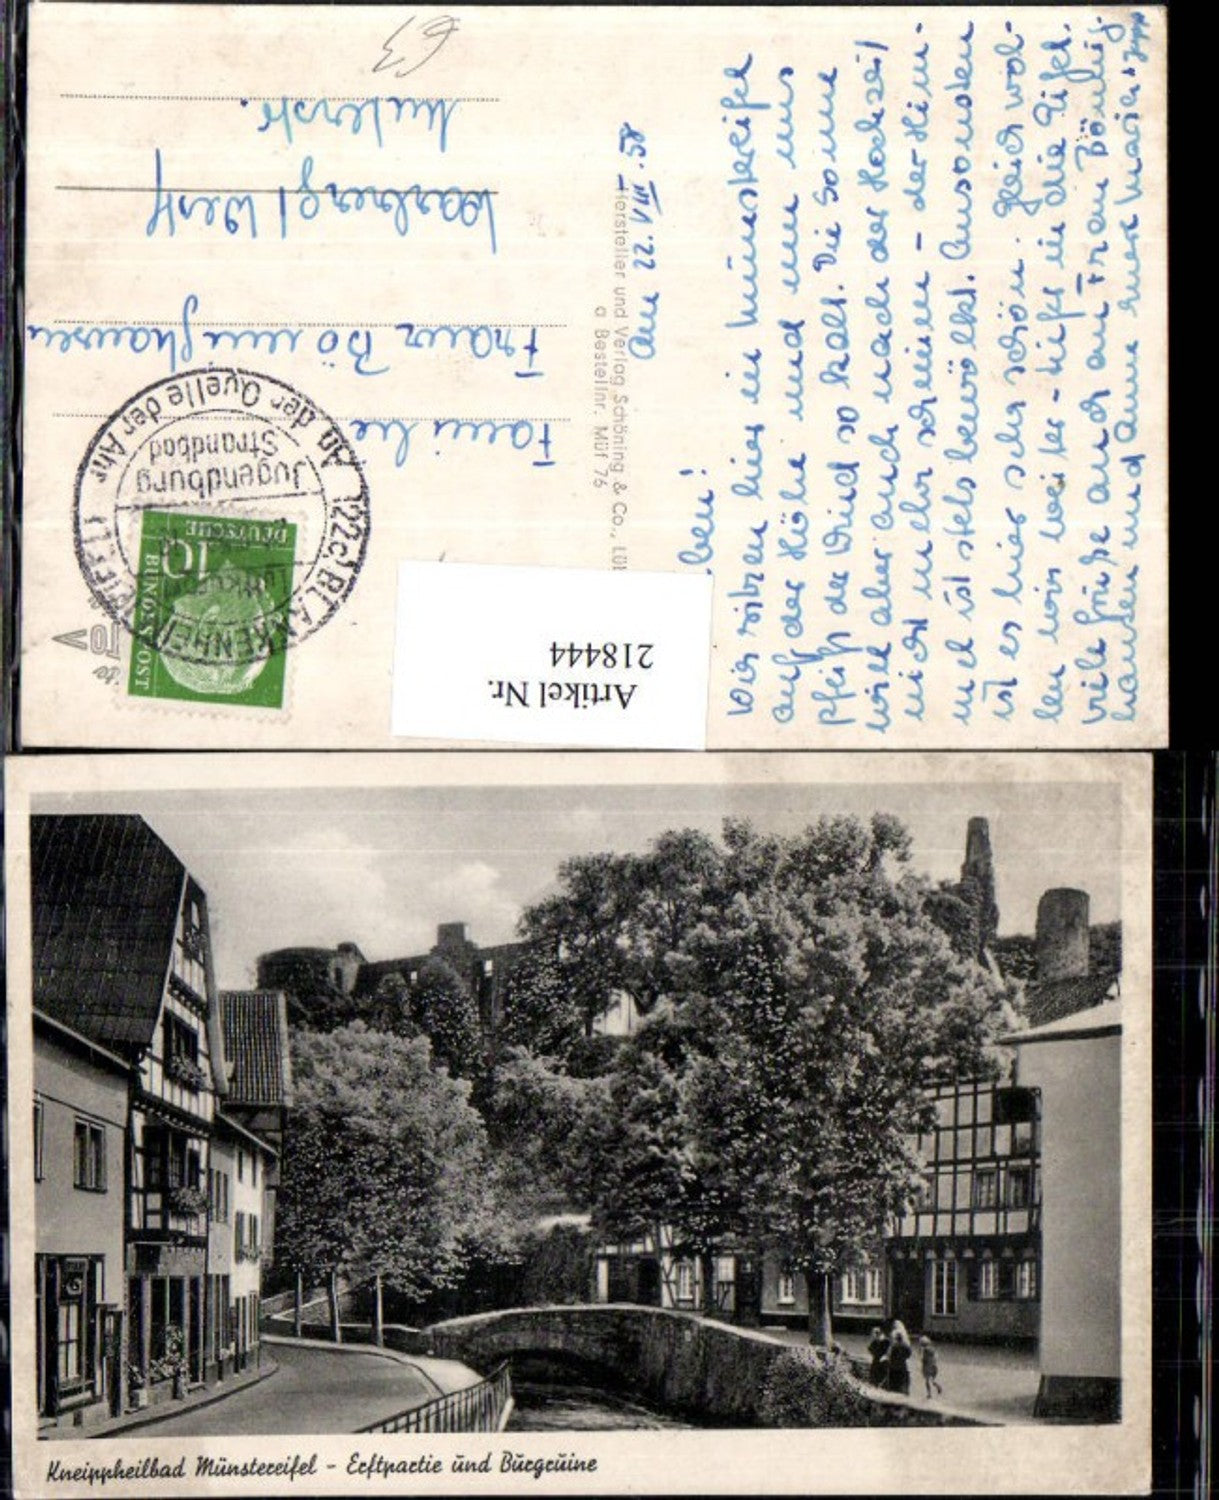 Am 22. VIII. 58
ben!
Wir sitzen hier in Münstereifel
auf der Höhe und um uns
pfeift der Wind so kalt. Die Sonne
will aber auch nach der Hochzeit
nicht mehr scheinen – der Him-
mel ist stets bewölkt. Ansonsten
ist es hier sehr schön. Gleich wol-
len wir weiter – tiefer in die Eifel.
Viele Grüße auch an Frau Bönnig-
hausen und Anne eure Maria + Jupp
Hersteller und Verlag Schöning & Co., Lüb
a Bestellnr. Müf 76
Familie
Franz Bönnighausen
Warburg/Westf
63
(22c) BLANKENHEIM (EIFEL)
An der Quelle der Ahr
Jugendburg
Strandbad
10
DEUTSCHE
BUNDESPOST
Artikel Nr.
218444
Kneippheilbad Münstereifel – Erftpartie und Burgruine